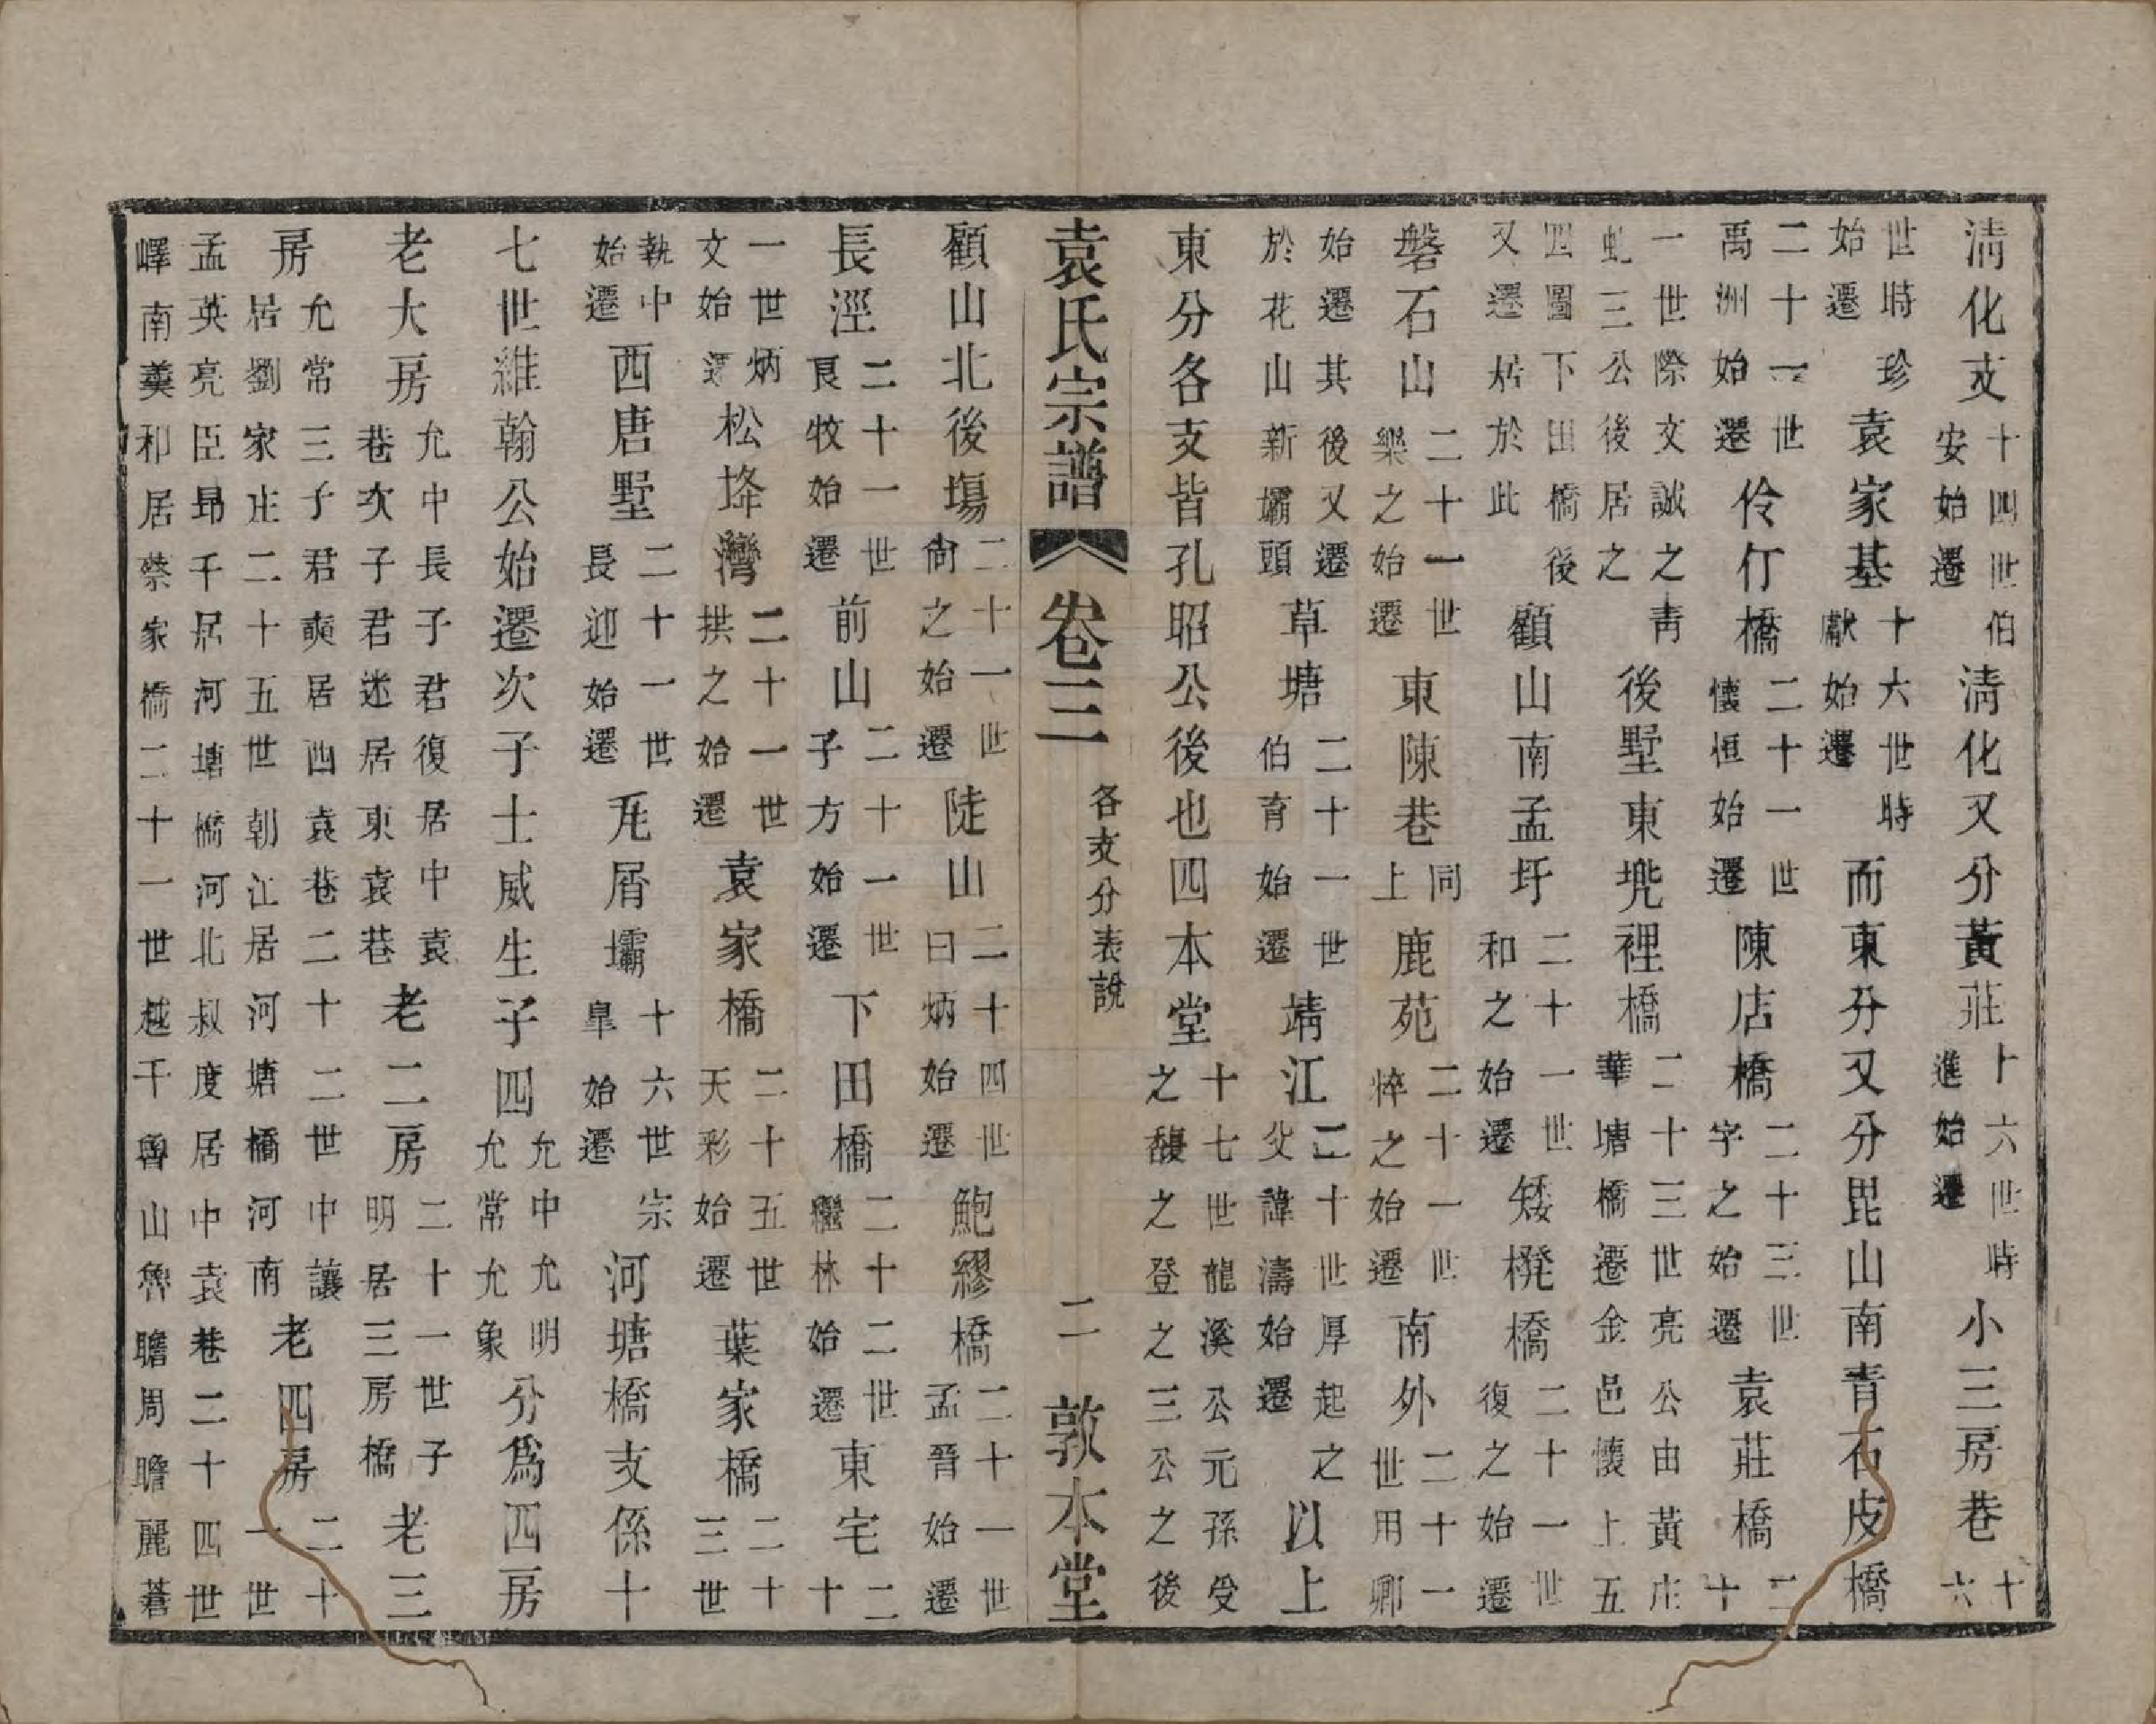 清化支十四世伯安始遷清化又分黃莊十六世時進始遷小三房巷十六
世時珍始遷袁家基十六世時獻始遷而東分又分毘山南青石皮橋
二十一世禹洲始遷伶仃橋二十一世懷恒始遷陳店橋二十三世字之始遷袁莊橋二十
一世際文誠之青虬三公後居之後墅東兠裡橋二十三世亮公由黃庄華塘橋遷金邑懷上五
四圖下田橋後又遷居於此顧山南孟圩二十一世和之始遷矮櫈橋二十一世復之始遷
磐石山二十一世樂之始遷東陳巷同上鹿苑二十一世悴之始遷南外二十一世用卿
始遷其後又遷於花山新壩頭草塘二十一世伯育始遷靖江二十世厚起之父諱濤始遷以上
東分各支皆孔昭公後也四本堂十七世龍溪公元孫受之馥之登之三公之後
袁氏宗譜 卷三 各支分表說 二 敦本堂
顧山北後塲二十一世尙之始遷陡山二十四世曰炳始遷鮑繆橋二十一世孟晉始遷
長涇二十一世艮牧始遷前山二十一世子方始遷下田橋二十二世繼林始遷東宅二十
一世炳文始遷松垳灣二十一世拱之始遷袁家橋二十五世天彩始遷葉家橋二十三世
執中始遷西唐墅二十一世長迎始遷瓦屑壩十六世宗臯始遷河塘橋支係十
七世維翰公始遷次子士威生子四允中允明允常允象分爲四房
老大房允中長子君復居中袁巷次子君迷居東袁巷老二房二十一世子明居三房橋老三
房允常三子君奭居西袁巷二十二世中讓居劉家庄二十五世朝江居河塘橋河南老四房二十一世
孟英亮臣昻千居河塘橋河北叔度居中袁巷二十四世
嶧南羹和居蔡家橋二十一世越千魯山魯瞻周瞻麗蒼